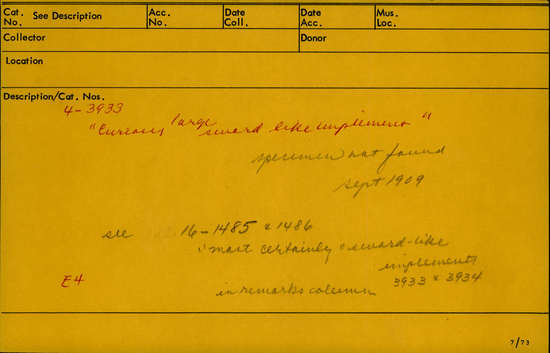 Cat. No. See Description
Acc. No.
Date Coll.
Date Acc.
Mus. Loc.
Collector
Donor
Location
Description/Cat. Nos.
4-3933
"Curious large sword like implement"
specimen not found
Sept 1909
see 16-1485 & 1486
"most certainly" sword-like
implements
3933 & 3934
in remarks column
E4
7/73